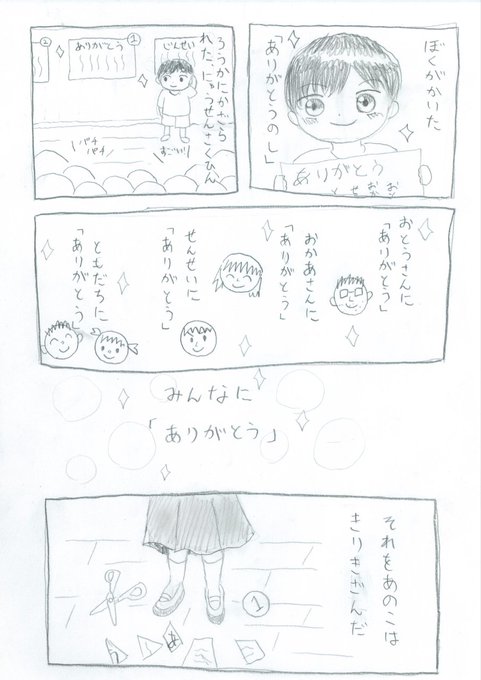 ぼくがかいた
「ありがとうのし」
ありがとう
ろうかにかざら
れた、にゅうせんさくひん
じんせい
①
ありがとう
②
パチ
パチ
すごい!
おとうさんに
「ありがとう」
おかあさんに
「ありがとう」
せんせいに
「ありがとう」
ともだちに
「ありがとう」
みんなに
「ありがとう」
それをあのこは
きりきざんだ
①